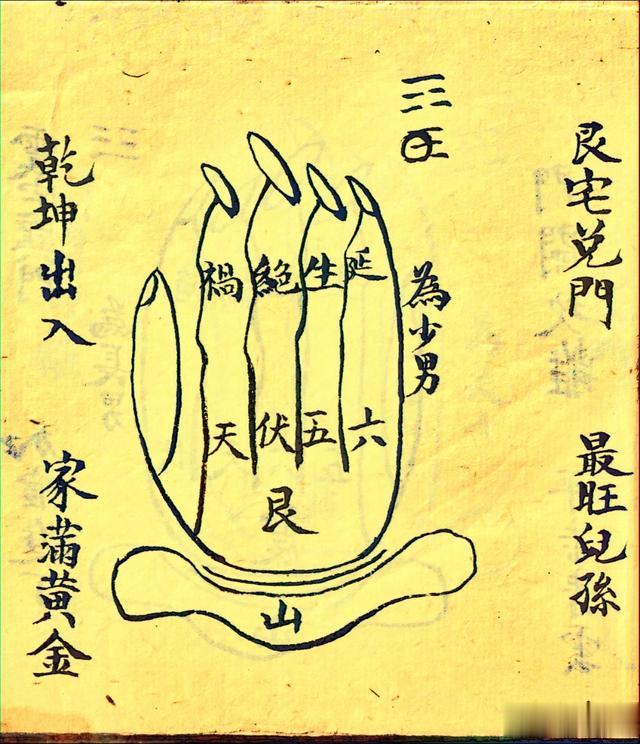 艮宅兌門
最旺兒孫
為少男
延生絕禍
六五伏天
艮
山
乾坤出入
家滿黃金